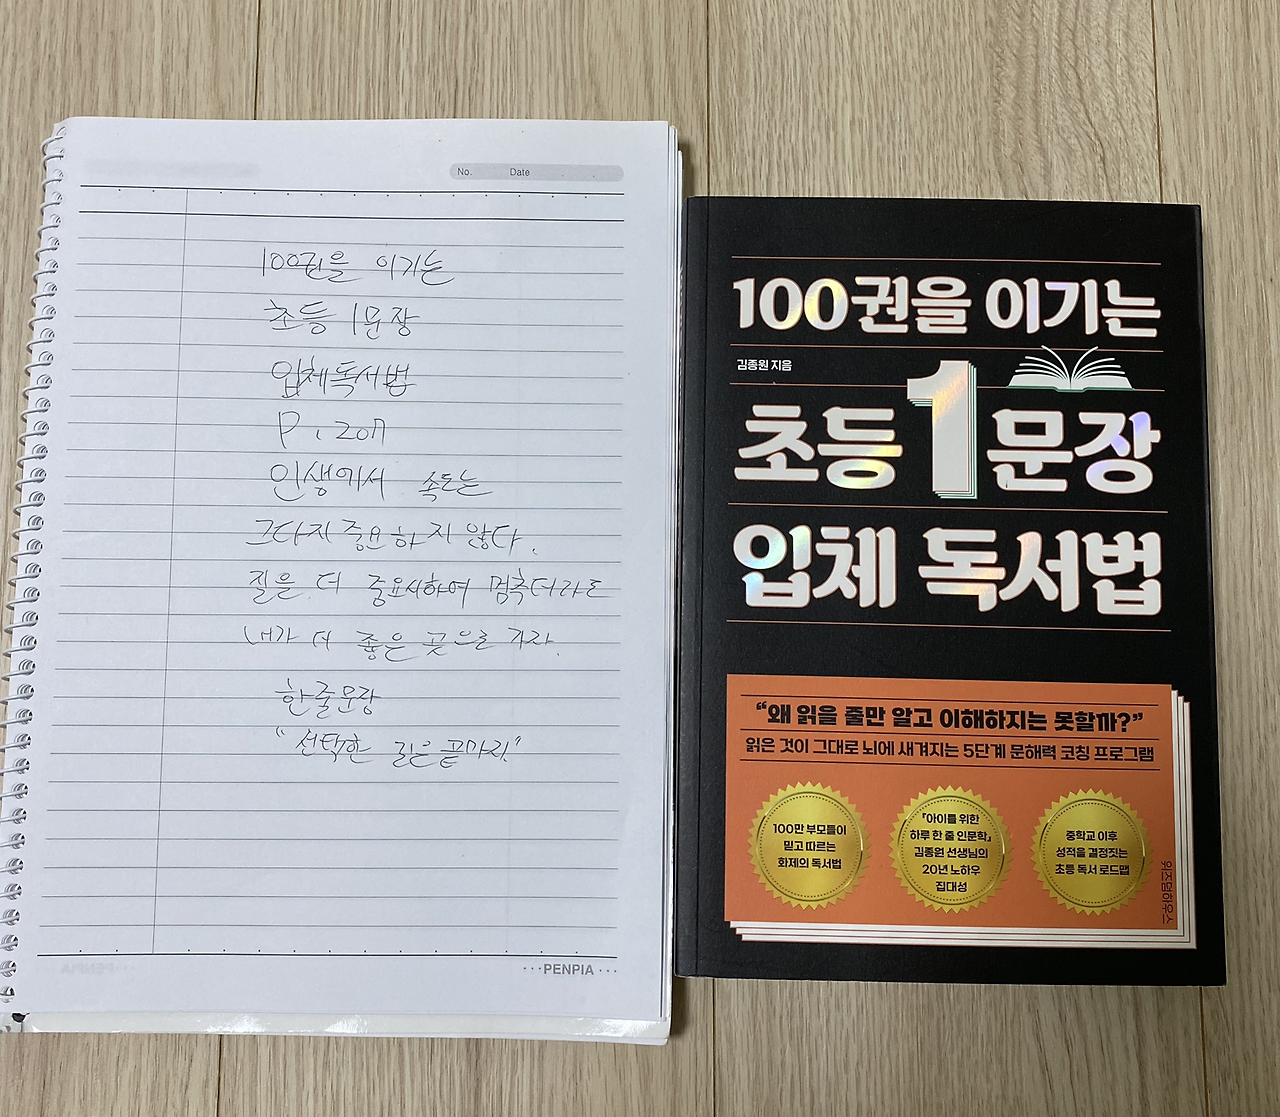 No. Date
100권을 이기는
초등 1문장
입체독서법
P. 207
인생에서 속도는
그다지 중요하지 않다.
질을 더 중요시하여 멈추더라도
내가 더 좋은 곳으로 가라.
한줄문장
"선택한 길은 끝까지"
PENPIA
100권을 이기는
김종원 지음
초등 1 문장
입체 독서법
“왜 읽을 줄만 알고 이해하지는 못할까?”
읽은 것이 그대로 뇌에 새겨지는 5단계 문해력 코칭 프로그램
100만 부모들이
믿고 따르는
화제의 독서법
『아이를 위한
하루 한 줄 인문학』
김종원 선생님의
20년 노하우
집대성
중학교 이후
성적을 결정짓는
초등 독서 로드맵
위즈덤하우스